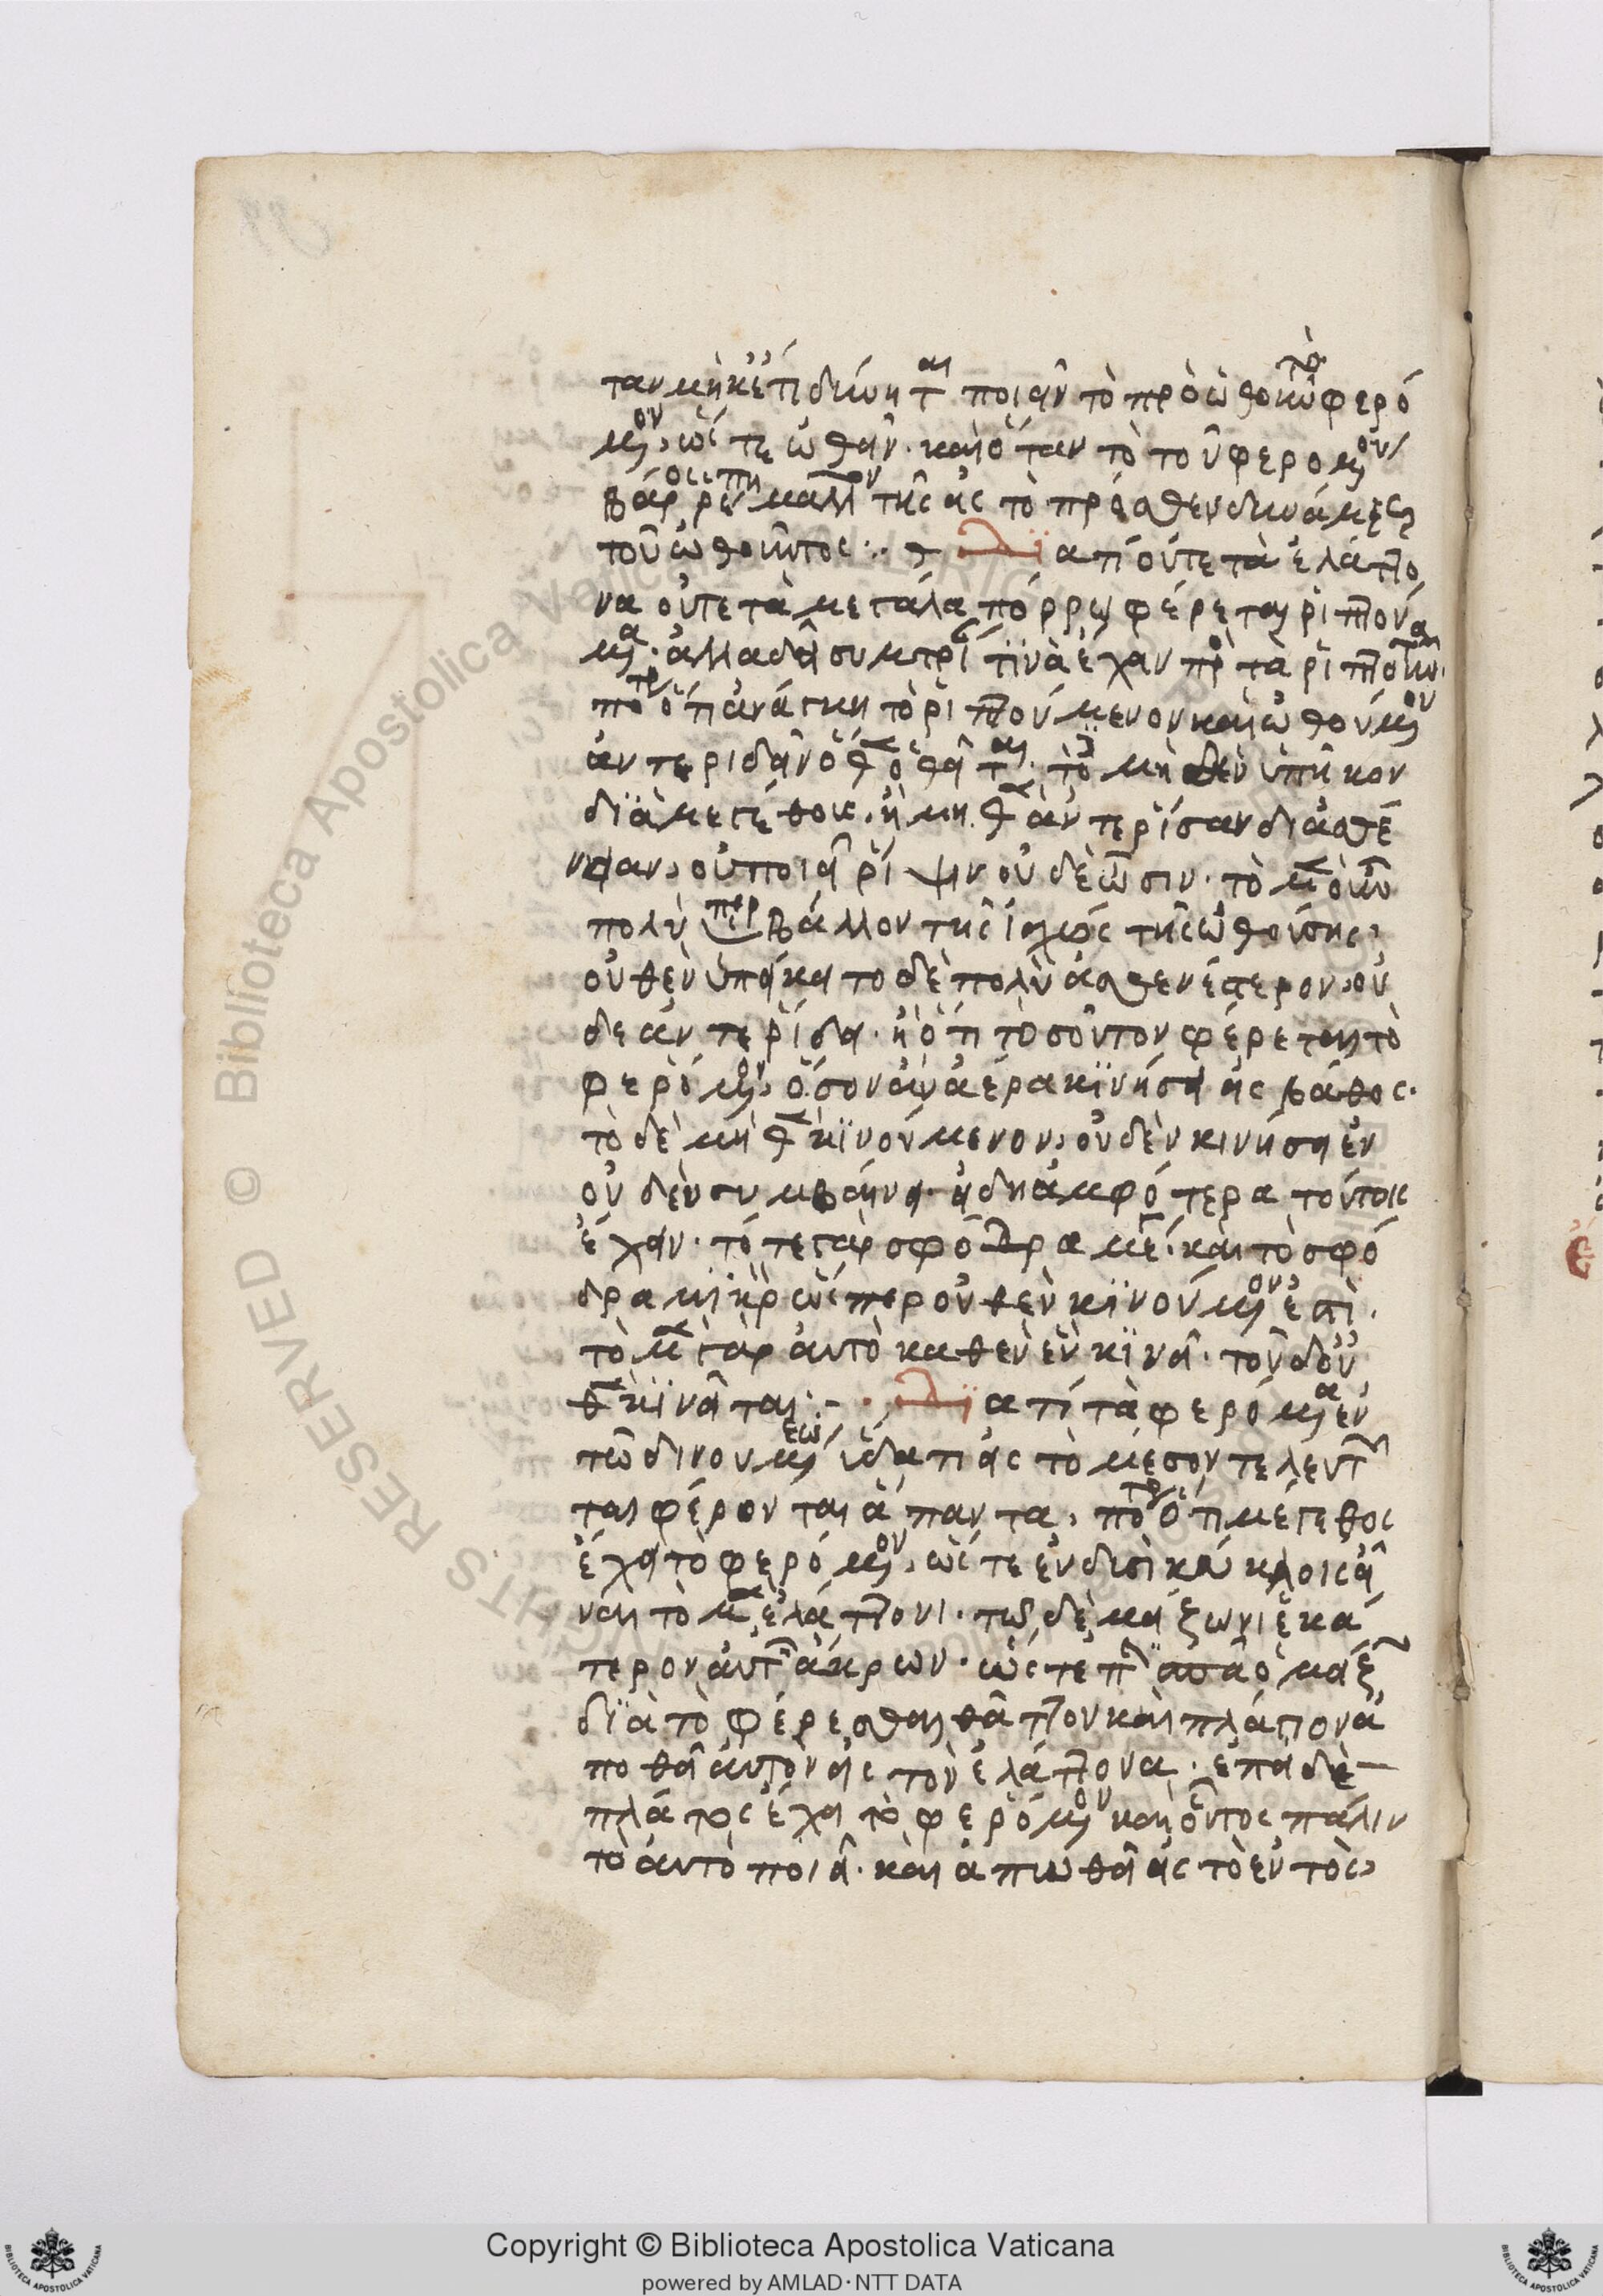 ταν μηκέτι δύνηται ποιεῖν τὸ προωθοῦν τὸ φερό
μενον, ὥστε ὠθεῖν. καὶ ὅταν τὸ τοῦ φερομένου
βάρος ῥέπῃ μᾶλλον τῆς εἰς τὸ πρόσθεν δυνάμεως
τοῦ ὠθοῦντος:· Διατί οὔτε τὰ ἐλάττο
να οὔτε τὰ μεγάλα πόρρω φέρεται ῥιπτού
μενα. ἀλλὰ δεῖ συμμετρίαν τινὰ ἔχειν πρὸς τὰ ῥιπτοῦντα.
πότερον ὅτι ἀνάγκη τὸ ῥιπτούμενον καὶ ὠθούμενον
ἀντερείδειν ὅθεν ὠθεῖται. τὸ δὲ μηδὲν ὑπεῖκον
διὰ μέγεθος. ἢ μηδὲν ἀντερεῖσαν δι' ἀσθέ
νειαν, οὐ ποιεῖ ῥίψιν οὐδὲ ὦσιν. τὸ μὲν οὖν
πολὺ ὑπερβάλλον τῆς ἰσχύος τῆς ὠθούσης,
οὐθὲν ὑπείκει τὸ δὲ πολὺ ἀσθενέστερον, οὐ
δὲ ἀντερείδει. ἢ ὅτι τοσοῦτον φέρεται τὸ
φερόμενον, ὅσον ἂν ἀέρα κινήσῃ εἰς βάθος.
τὸ δὲ μηδὲν κινούμενον, οὐδὲν κινήσειεν
οὐδὲν συμβαίνει. ἢ δὴ ἀμφότερα τούτοις
ἔχειν. τό τε γὰρ σφόδρα μέγα. καὶ τὸ σφό
δρα μικρὸν ὥσπερ οὐθὲν κινούμενόν ἐστι.
τὸ μὲν γὰρ αὐτὸ καθὲν ἓν κινεῖ. τοῦ δ' οὐ
θὲν κινεῖται:– Διατί τὰ φερόμενα ἐν
τῷ δινουμένῳ ὕδατι εἰς τὸ μέσον τελευτῶν
τα φέρονται ἅπαντα, πότερον ὅτι μέγεθος
ἔχει τὸ φερόμενον, ὥστε ἐν δυσὶ κύκλοις εἶ
ναι τὸ μὲν ἐλάττονι. τῷ δὲ μείζονι ἑκά
τερον αὐτοῦ τῶν ἄκρων. ὥστε περισπᾷ ὁ μείζων
διὰ τὸ φέρεσθαι θᾶττον καὶ πλάγιον ἀ
πωθεῖ αὐτὸν εἰς τὸν ἐλάττονα. ἐπεὶ δὲ
πλάτος ἔχει τὸ φερόμενον καὶ οὗτος πάλιν
τὸ αὐτὸ ποιεῖ. καὶ ἀπωθεῖ εἰς τὸ ἐντὸς,